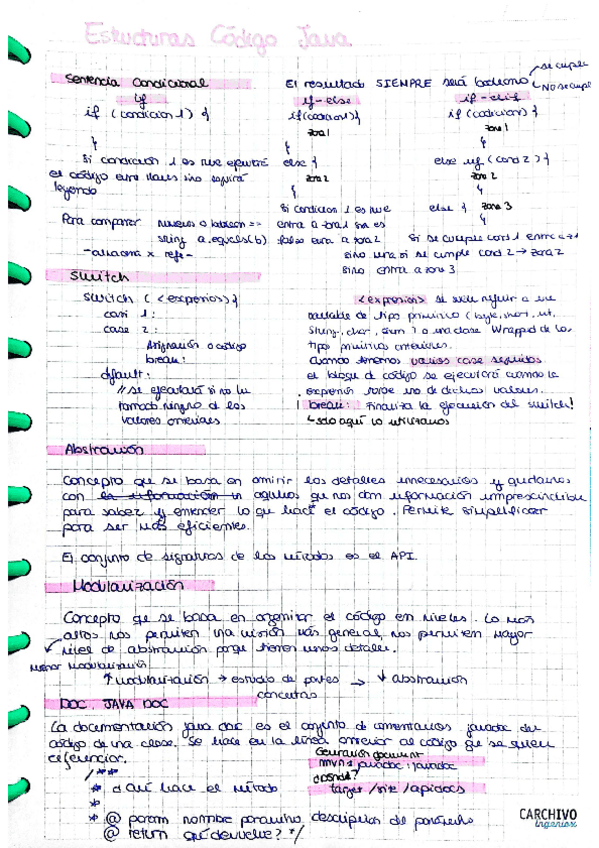 Estructuras Código Java
Sentencia Condicional
if
if (condicion1) {
}
Si condición 1 es true ejecutará
el código entre llaves sino seguirá
leyendo
El resultado SIEMPRE será booleano
se cumple
No se cumple
if-else
if(condicion1){
zona1
}
else {
zona2
}
Si condicion 1 es true
entra a zona1 sino es
false entra a zona2
if-elseif
if (condicion1) {
zona1
}
else if (cond2) {
zona 2
}
else { zona 3
}
Si se cumple cond1 entra a z1
sino mira si se cumple cond 2 → zona2
sino entra a zona 3
Para comparar numeros o boolean ==
string a.equals(b)
Switch
switch ( <expresion>) {
case 1:
case 2:
Asignación o código
break;
default:
// se ejecutará si no ha
tomado ninguno de los
valores anteriores
<expresion> se suele referir a una
variable de tipo primitivo (byte, short, int,
String, char, enum) o una clase Wrapped de los
tipos primitivos anteriores.
Cuando tenemos varios case seguidos
el bloque de código se ejecutará cuando la
expresión tome uno de dichos valores.
! break: Finaliza la ejecución del switch!
↳ solo aquí lo utilizamos
Abstracción
Concepto que se basa en omitir los detalles innecesarios y quedarnos
con la información in aquellos que nos dan información imprescindible
para saber y entender lo que hace el código. Permite simplificar
para ser más eficientes.
El conjunto de signaturas de los métodos es el API.
Modularización
Concepto que se basa en organizar el código en niveles. Lo más
altos nos permiten una visión más general, nos permiten mayor
nivel de abstracción porque tienen menos detalles.
Menor modularización
↑ modularización → estudio de partes → ↓ abstracción
concretas
DOC. JAVA DOC
La documentación java doc es el conjunto de comentarios javadoc del
código de una clase. Se hace en la línea anterior al código que se quiere
referenciar.
Generación document
mvn javadoc:javadoc
dónde?
target/site/apidocs
/**
* qué hace el método
*
* @ param nombre parametro descripcion del parámetro
@ return qué devuelve? */
CARCHIVO
Ingenior